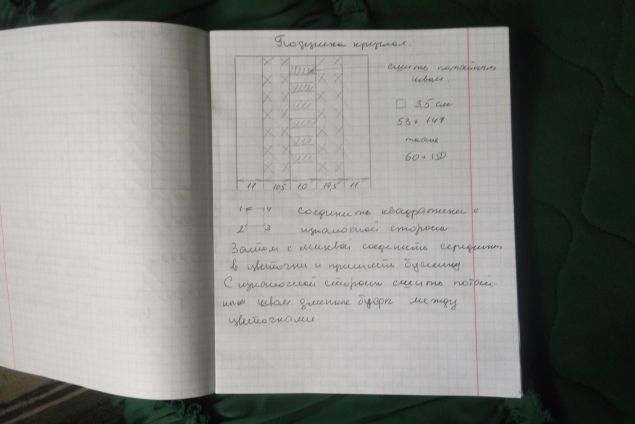 Подушка кругл.
сшить потайным
швом.
□ 3,5 см
53 × 147
ткань
60 × 150
11 10,5 10 10,5 11
1 4 соединить квадратики с
2 3 изнаночной стороны
Затем с лицевой соединить серединки
в цветочки и пришить бусинку
С изнаночной стороны сшить потай-
ным швом длинные буфы между
цветочками.